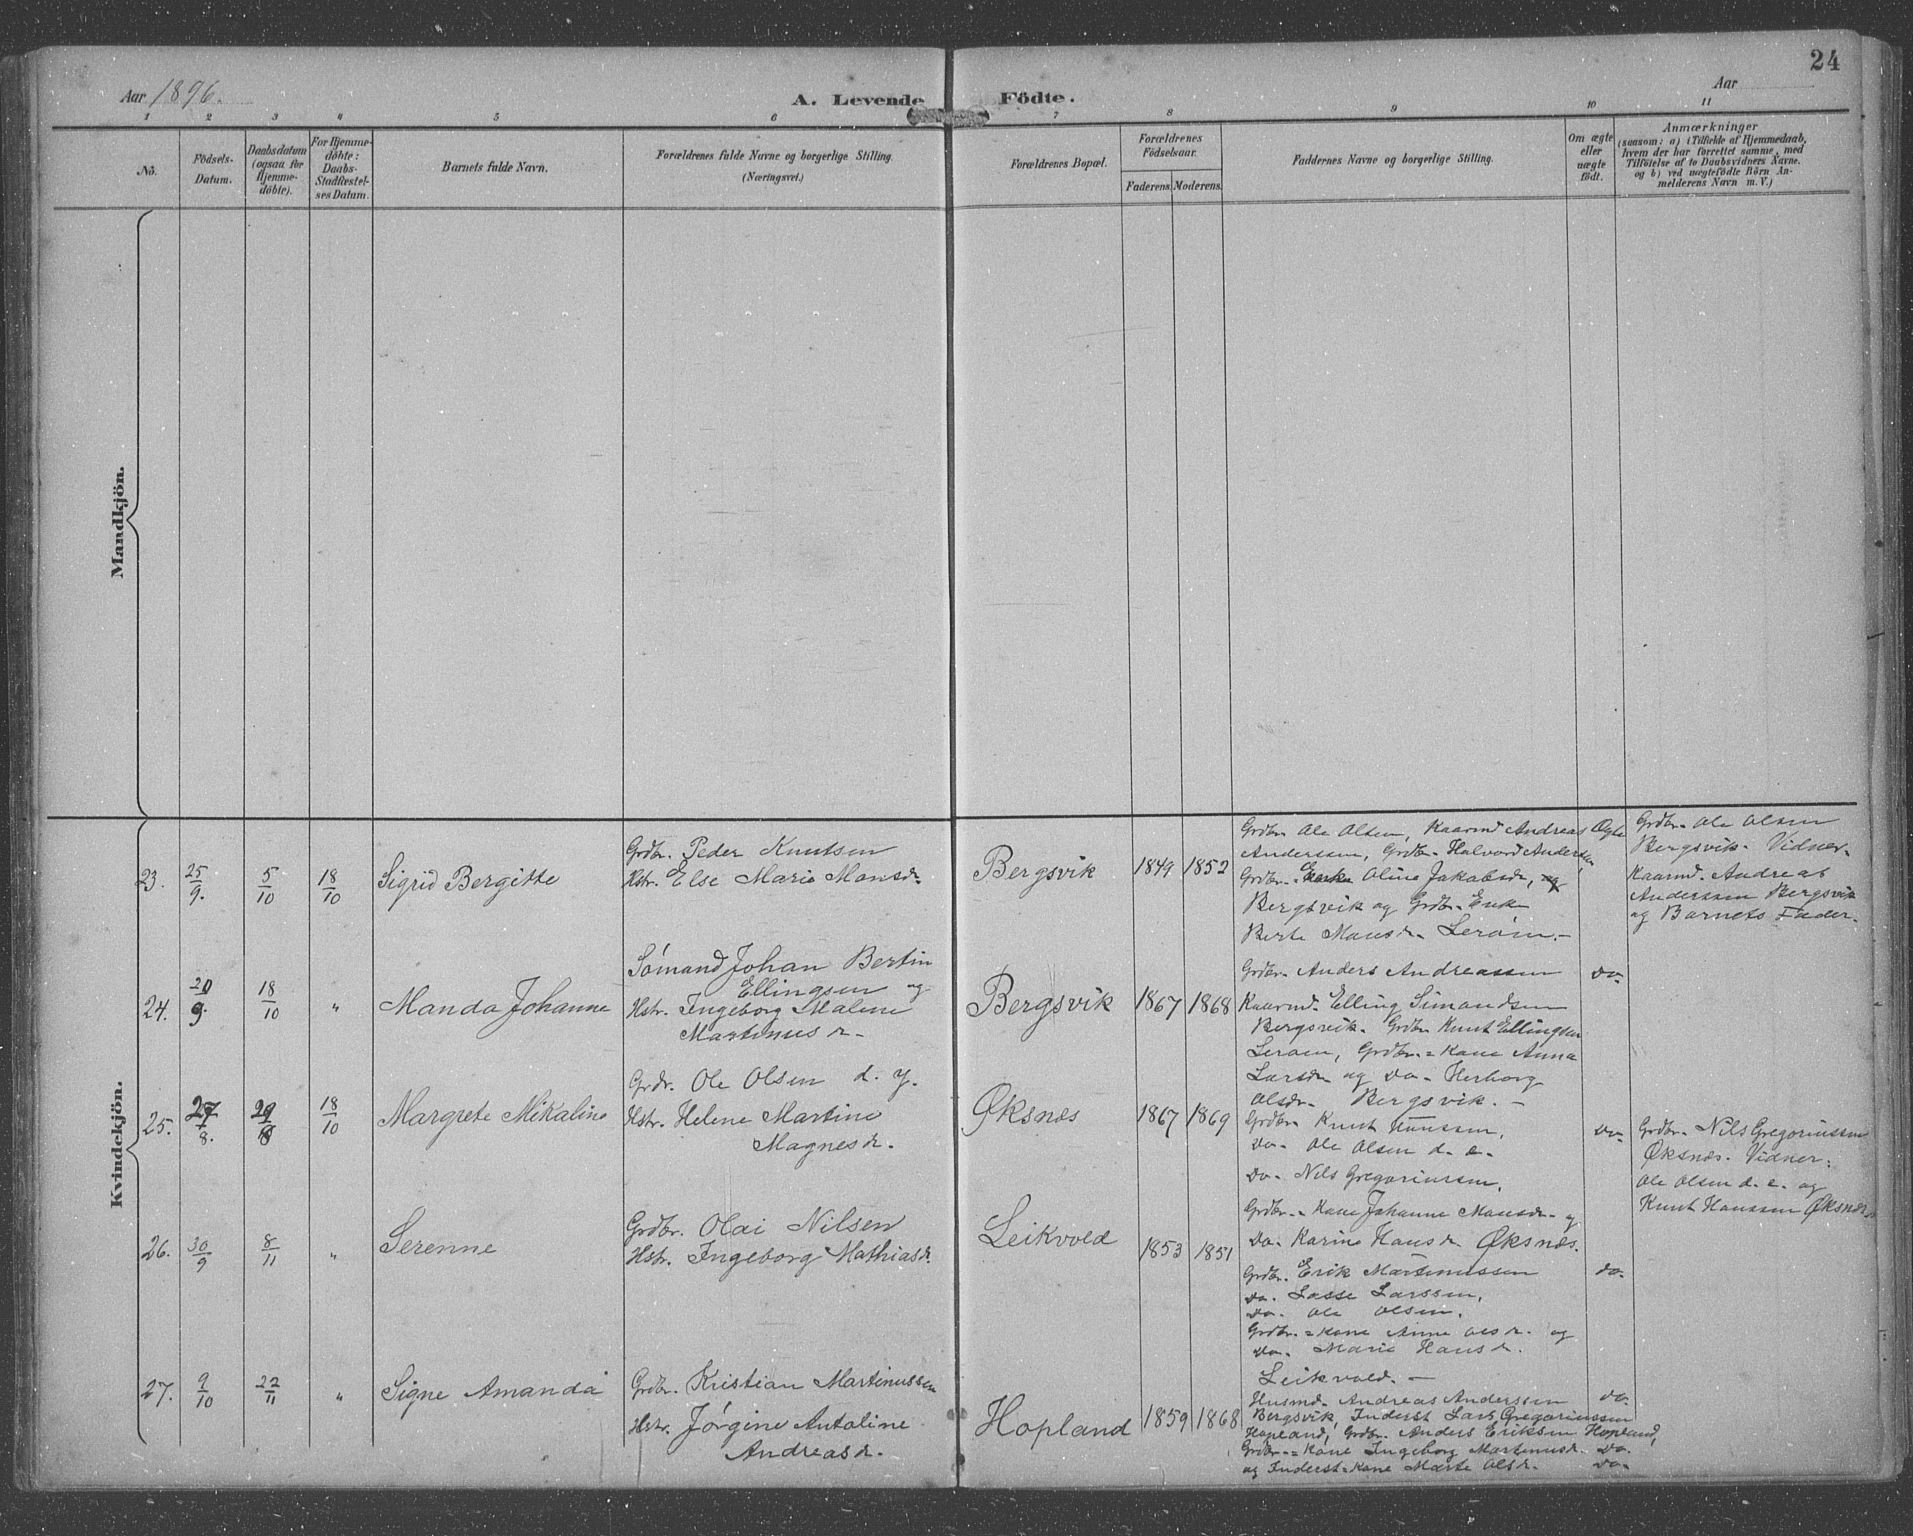 24
Aar 1896.
A. Levende Födte.
Aar
1 2 3 4 5 6 7 8 9 10 11
No.
Födsels-
Datum.
Daabsdatum
(ogsaa for
Hjemme-
döbte).
For Hjemme-
döbte:
Daabs-
Stadfæstel-
ses Datum.
Barnets fulde Navn.
Forældrenes fulde Navne og borgerlige Stilling.
(Næringsvei.)
Forældrenes Bopæl.
Forældrenes
Födselsaar.
Faderens. Moderens.
Faddernes Navne og borgerlige Stilling.
Om ægte
eller
uægte
födt.
Anmærkninger
(saasom: a) i Tilfælde af Hjemmedaab,
hvem der har forrettet samme, med
Tilföielse af to Daabsvidners Navne.
og b) ved uægtefödte Börn An-
melderens Navn m. V.)
Mandkjön.
Kvindekjön.
23.
25/9.
5/10
18/10
Sigrid Bergitte
Grdbr. Peder Knutsen
Hstr. Else Marie Monsdr.
Bergsvik
1849 1852
Grdbr. Ole Olsen, Kaarmd Andreas
Anderssen, Grdbr. Halvord Anderssen,
Grdbr. Oline Jakobsdr,
Bergsvik og Grdbr. Enke
Berte Monsdr. Lerøm.-
Ægte
Grdbr. Ole Olsen
Bergsvik. Vidner.
Kaarmd. Andreas
Anderssen Bergsvik
og Barnets Fader.
24.
20/9
18/10
"
Manda Johanne
Sømand Johan Bertin
Ellingsen og
Hstr. Ingeborg Malene
Martinusdr.
Bergsvik
1867 1868
Grdbr. Anders Andreassen
Kaarmd. Elling Simondsen
Bergsvik. Grdbr. Knut Ellingsen
Lerøm, Grdbr.=Kone Anna
Larsdr og Do. Herborg
Olsdr. Bergsvik.-
Do.
25.
27/8.
29/8
18/10
Margrete Mikaline
Grdr. Ole Olsen d. y.
Hstr. Helene Martine
Magnesdr.
Øksnes
1867 1869
Grdbr. Knut Hanssen,
Do. Ole Olsen d. e.
Do. Nils Gregoriussen,
Grdbr.=Kone Johanne Monsdr. og
Do. Karine Hansdr Øksnæs.
Do.
Grdbr. Nils Gregoriussen
Øksnæs. Vidner:
Ole Olsen d. e. og
Knut Hanssen Øksnæs
26.
30/9
8/11
"
Serenne
Grdbr. Olai Nilsen
Hstr. Ingeborg Mathiasdr.
Leikvold
1853 1851
Grdbr. Erik Martinussen
Do. Lasse Larssen,
Do. Ole Olsen,
Grdbr.=Kone Anne Olsdr. og
Do. Marie Hansdr.
Leikvold.-
Do.
27.
9/10
22/11
"
Signe Amanda
Grdbr. Kristian Martinussen
Hstr. Jørgine Antoline
Andreasdr.
Hopland
1859 1868
Husmd. Andreas Anderssen
Bergsvik, Inderst Lars Gregoriussen
Hopland, Grdbr. Anders Eriksen Hopland,
Grdbr.=Kone Ingeborg Martinusdr. Do.
og Inderst=Kone Marte Olsdr. Do.
Do.